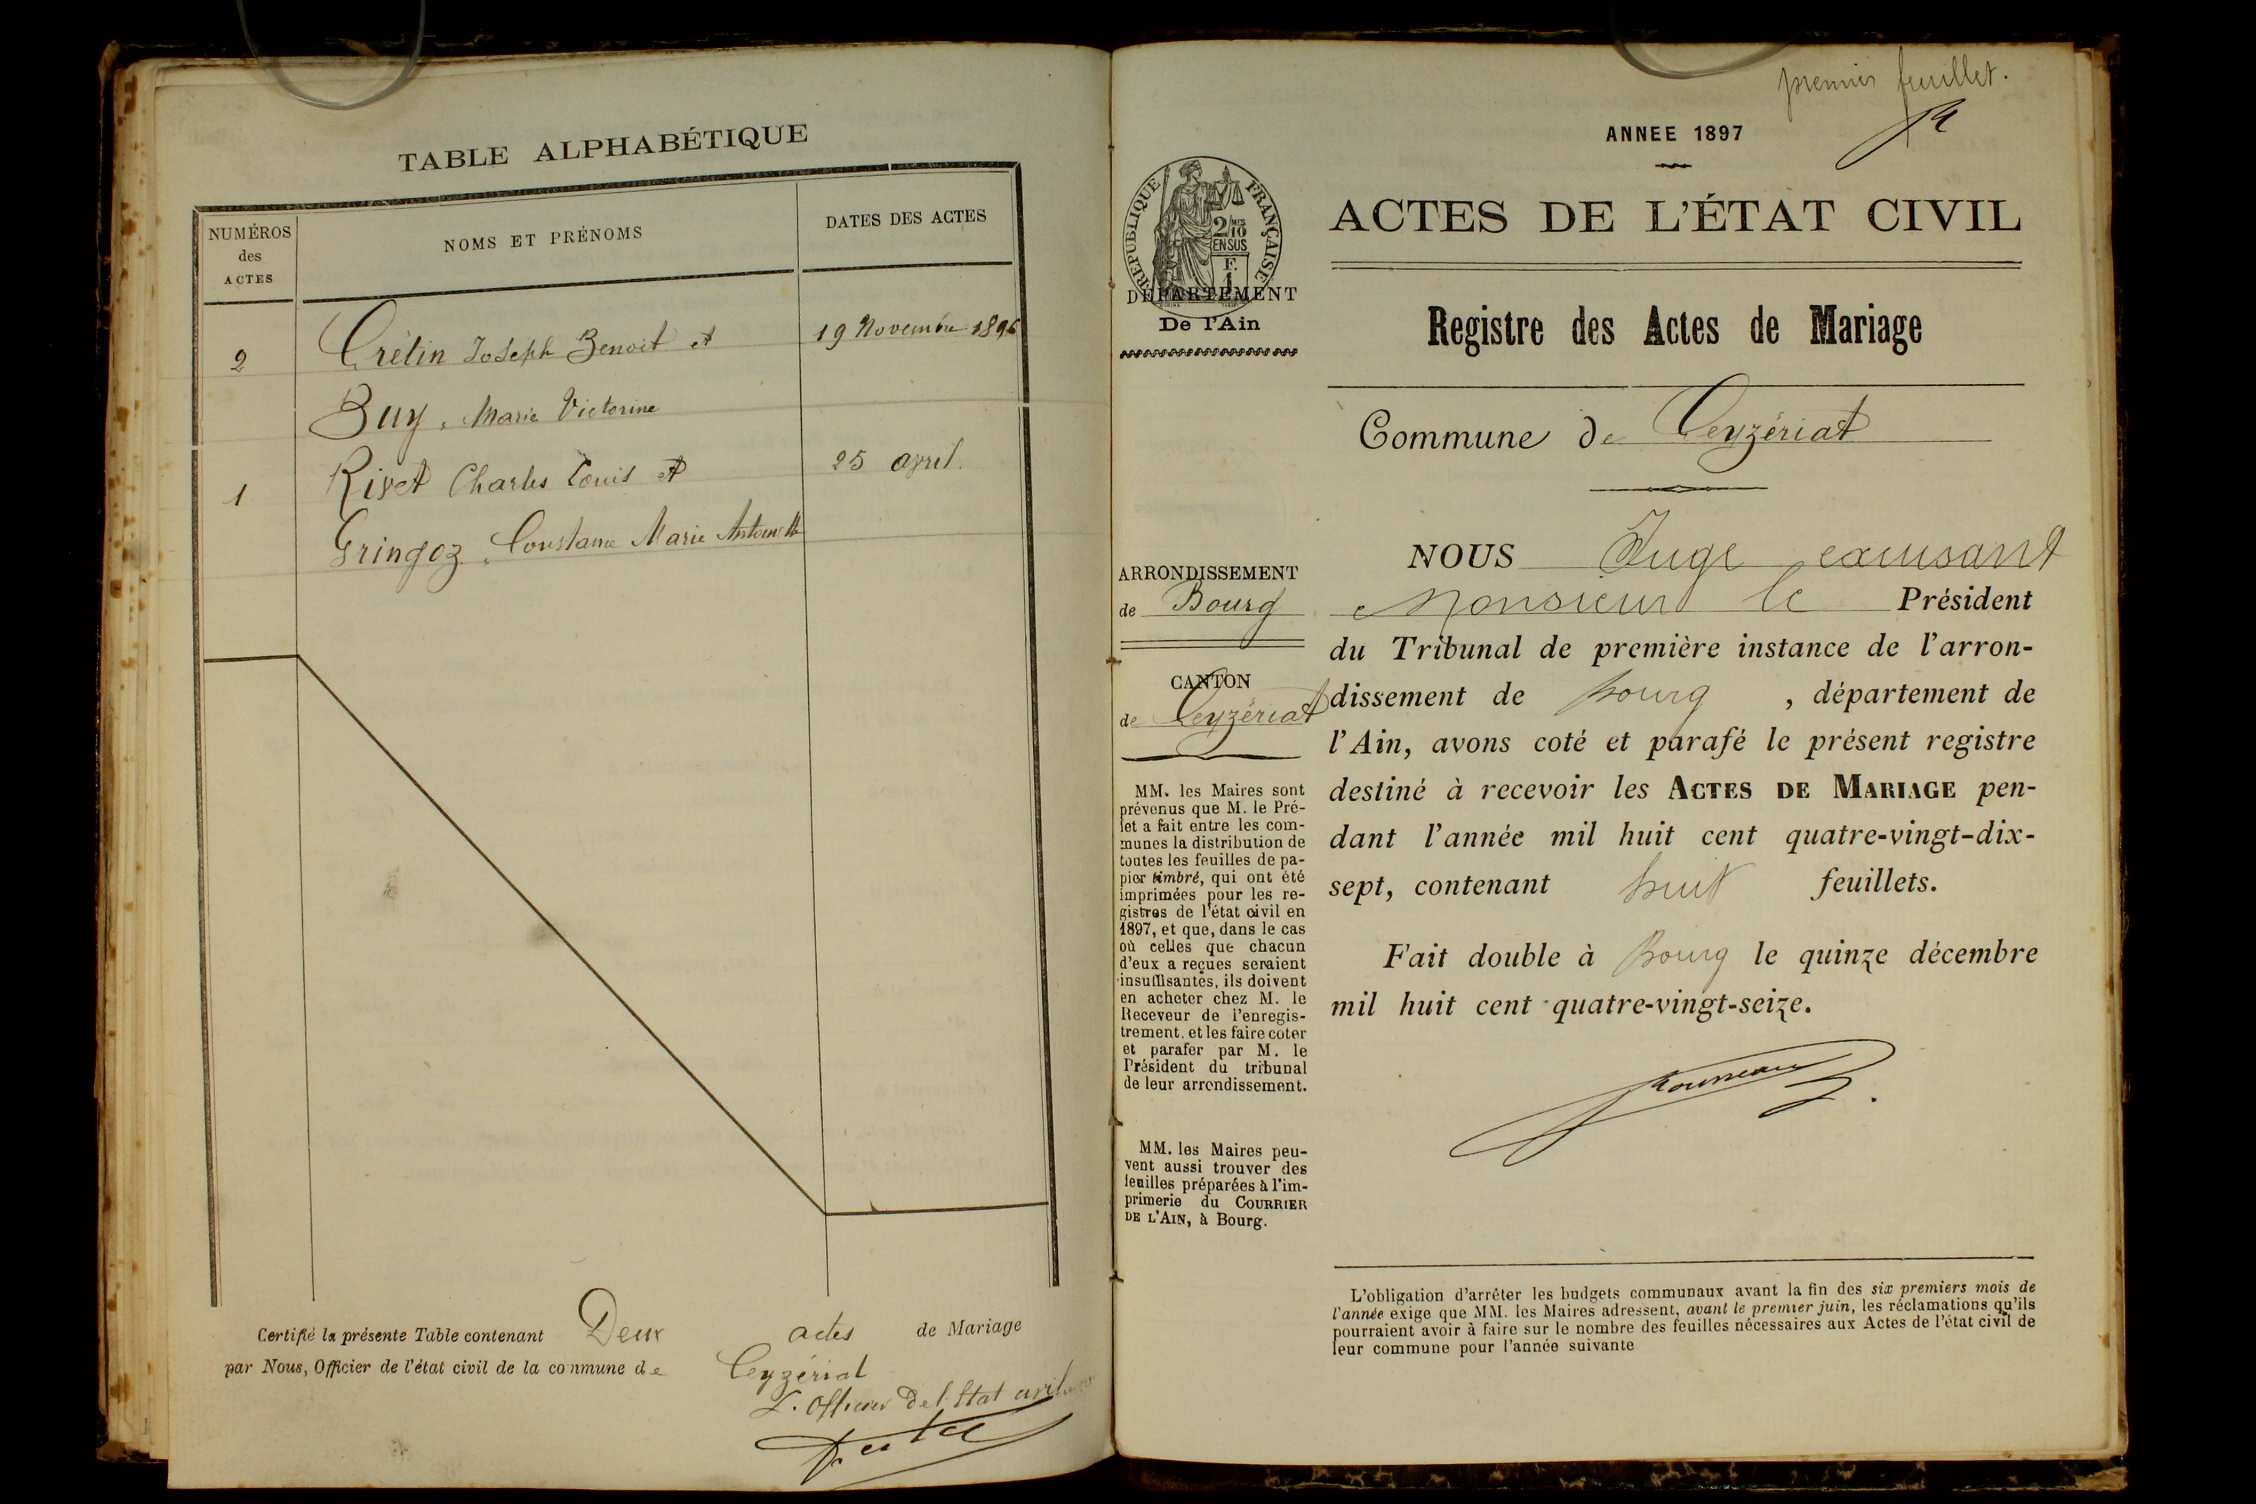 TABLE ALPHABÉTIQUE
NUMÉROS
des
ACTES
NOMS ET PRÉNOMS
DATES DES ACTES
2
Crétin Joseph Benoit et
19 Novembre 1896
Buy, Marie Victorine
1
Rivet Charles Louis et
25 avril.
Gringoz, Constance Marie Antoinette
Certifié la présente Table contenant Deux actes de Mariage
par Nous, Officier de l'état civil de la commune de Ceyzériat
L. Officier De l'Etat civil
premier feuillet.
ANNEE 1897
REPUBLIQUE FRANÇAISE
2/10
EN SUS
F.
1
DÉPARTEMENT
De l'Ain
ACTES DE L'ÉTAT CIVIL
Registre des Actes de Mariage
Commune de Ceyzériat
ARRONDISSEMENT
de Bourg
CANTON
de Ceyzériat
MM. les Maires sont
prévenus que M. le Pré-
fet a fait entre les com-
munes la distribution de
toutes les feuilles de pa-
pier timbré, qui ont été
imprimées pour les re-
gistres de l'état civil en
1897, et que, dans le cas
où celles que chacun
d'eux a reçues seraient
insuffisantes, ils doivent
en acheter chez M. le
Receveur de l'enregis-
trement, et les faire coter
et parafer par M. le
Président du tribunal
de leur arrondissement.
MM. les Maires peu-
vent aussi trouver des
feuilles préparées à l'im-
primerie du COURRIER
DE L'AIN, à Bourg.
NOUS Juge excusant
Monsieur le Président
du Tribunal de première instance de l'arron-
dissement de Bourg, département de
l'Ain, avons coté et parafé le présent registre
destiné à recevoir les ACTES DE MARIAGE pen-
dant l'année mil huit cent quatre-vingt-dix-
sept, contenant huit feuillets.
Fait double à Bourg le quinze décembre
mil huit cent quatre-vingt-seize.
L'obligation d'arrêter les budgets communaux avant la fin des six premiers mois de
l'année exige que MM. les Maires adressent, avant le premier juin, les réclamations qu'ils
pourraient avoir à faire sur le nombre des feuilles nécessaires aux Actes de l'état civil de
leur commune pour l'année suivante